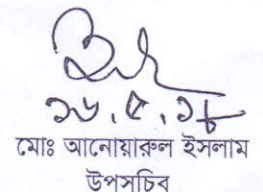 ১৬.৫.১৮
মোঃ আনোয়ারুল ইসলাম
উপসচিব